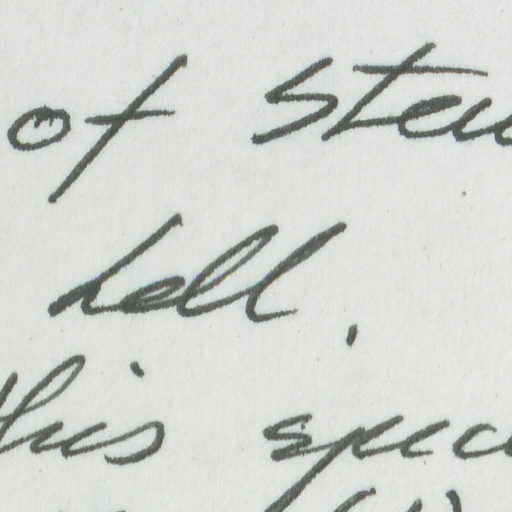 of Stew
hell.
this spec